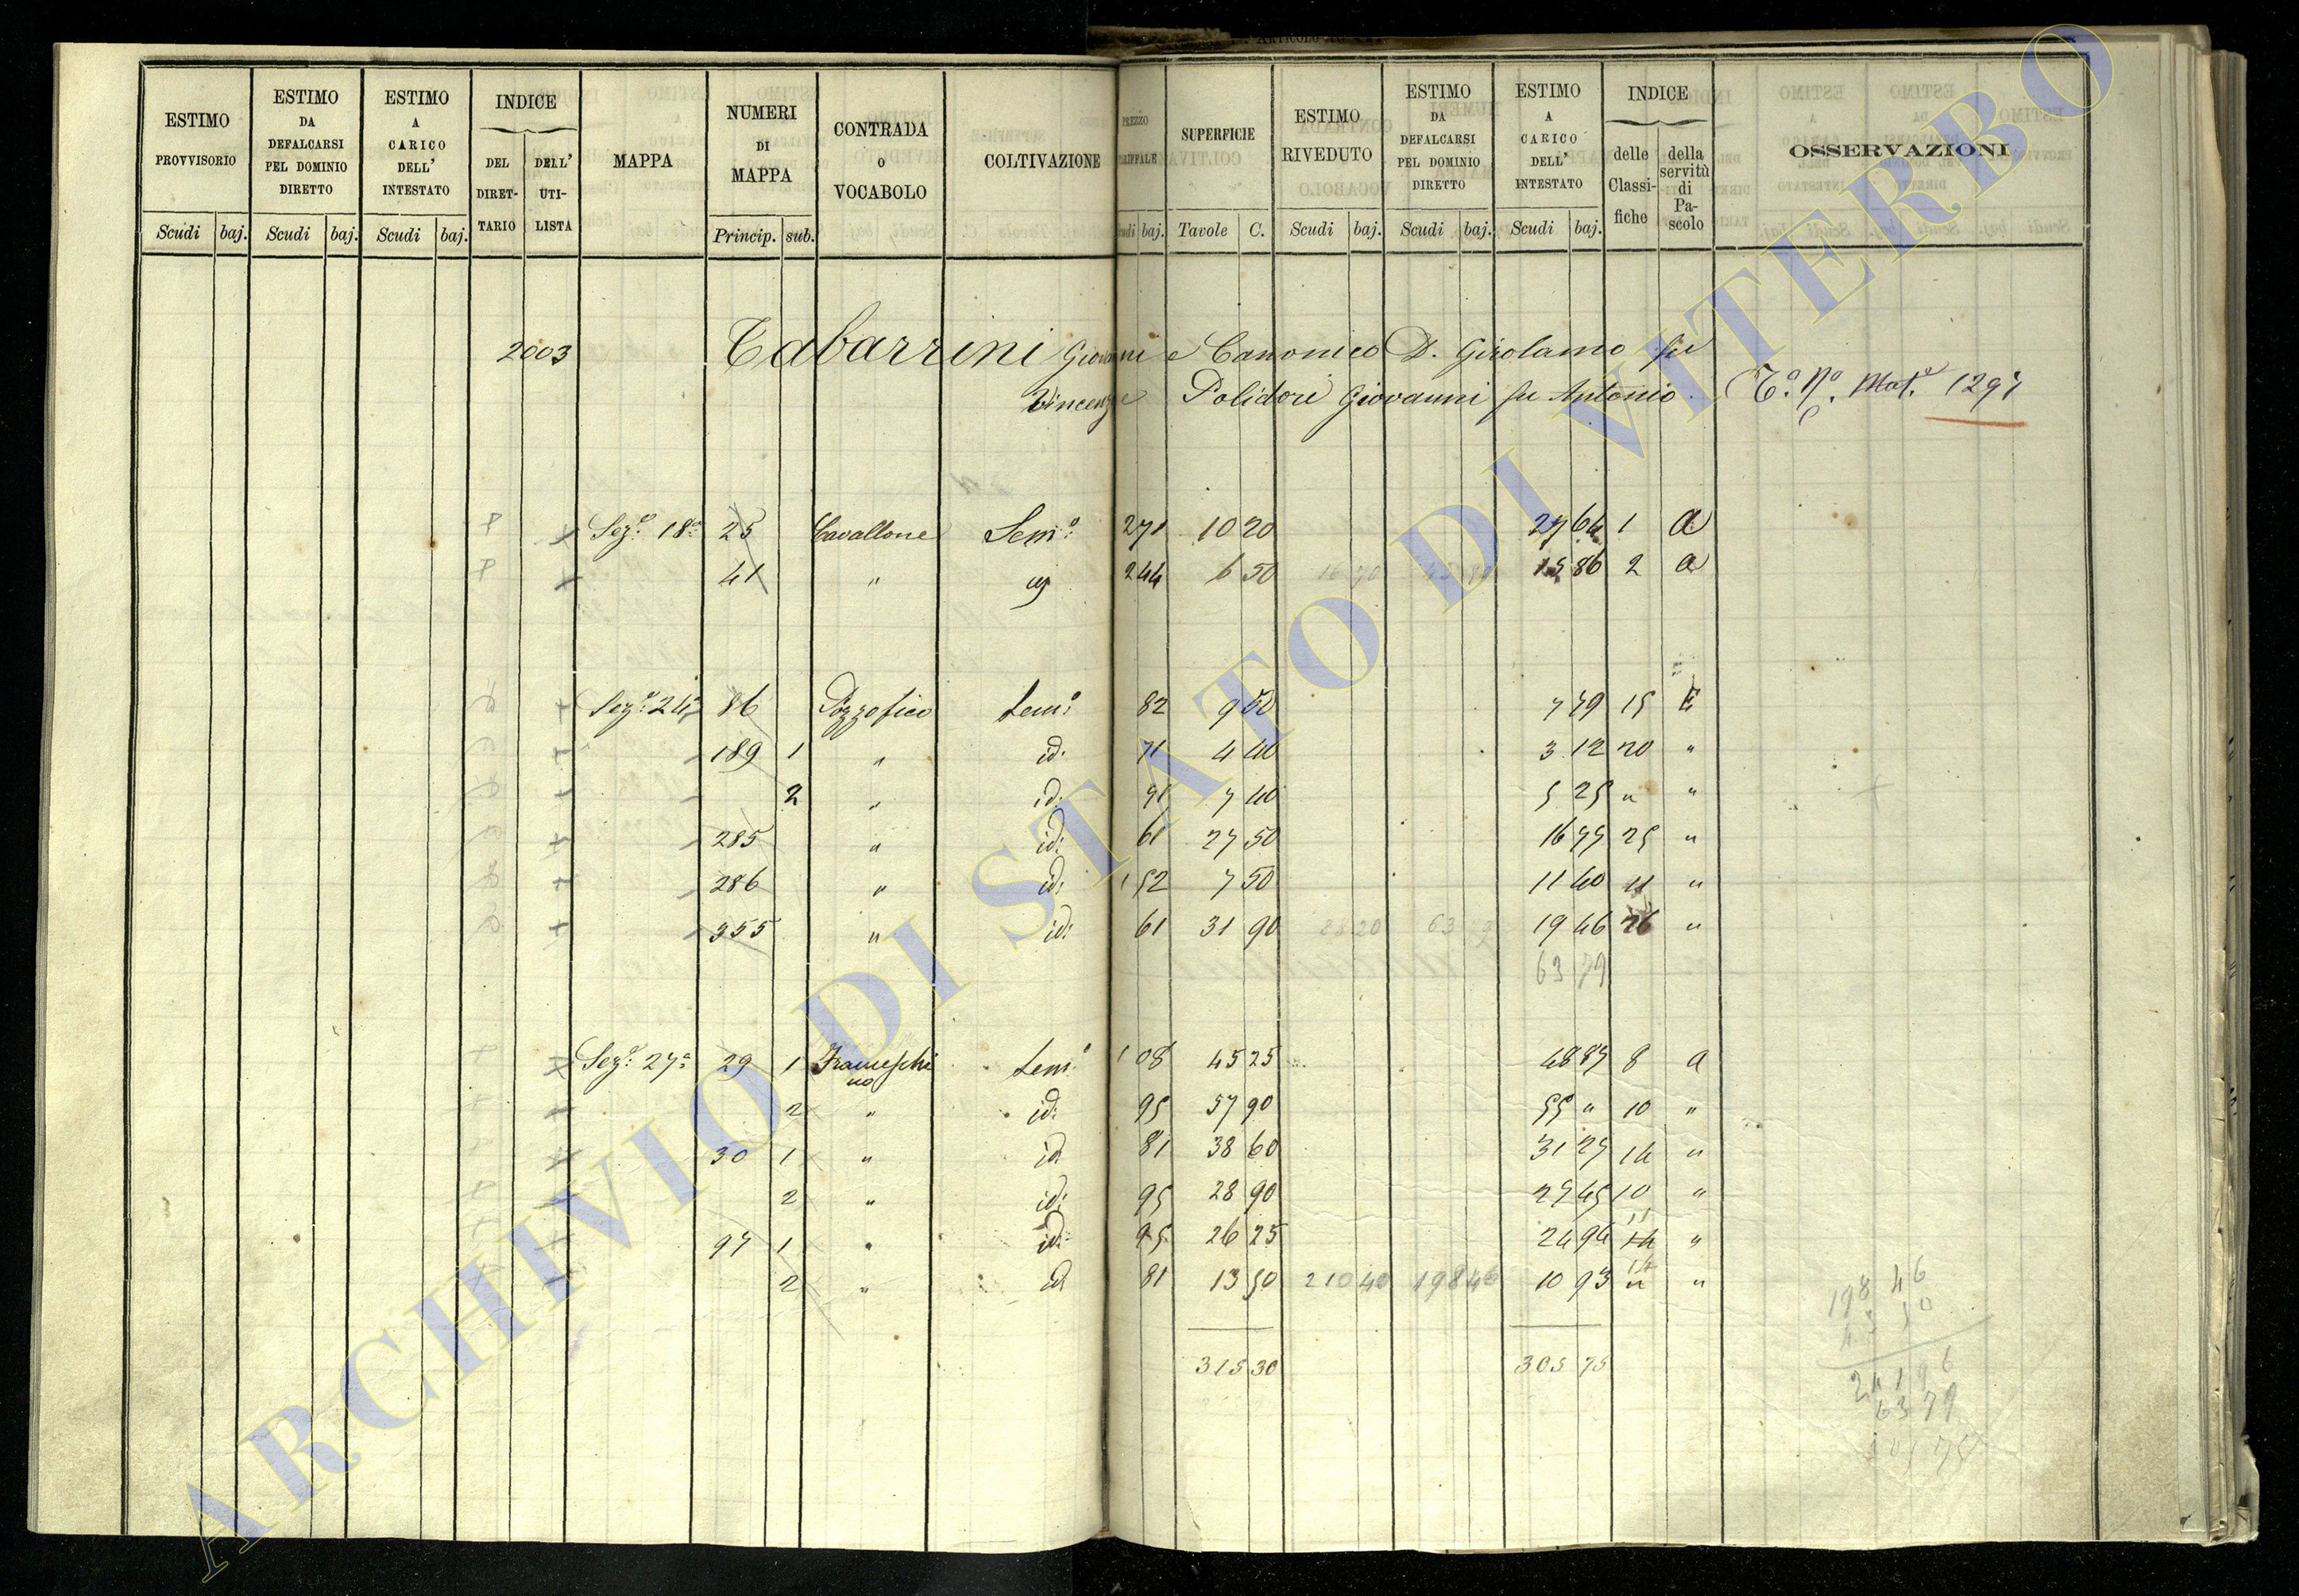 ESTIMO PROVVISORIO
ESTIMO DA DEFALCARSI PEL DOMINIO DIRETTO
ESTIMO A CARICO DELL' INTESTATO
INDICE
DEL DIRET-TARIO
DELL' UTI-LISTA
MAPPA
NUMERI DI MAPPA
CONTRADA O VOCABOLO
COLTIVAZIONE
PREZZO
SUPERFICIE
ESTIMO RIVEDUTO
ESTIMO DA DEFALCARSI PEL DOMINIO DIRETTO
ESTIMO A CARICO DELL' INTESTATO
INDICE
delle Classi-fiche
della servitù di Pa-scolo
OSSERVAZIONI
Scudi baj. Scudi baj. Scudi baj. Princip. sub. baj. Tavole C. Scudi baj. Scudi baj. Scudi baj.
2003 Tabarrini Giovanni e Canonico D. Girolamo fu
Vincenzo e Polidori Giovanni fu Antonio. Mat. 1297
Sez.e 18a 25 Cavallone Sem.o 271 10 20 27 64 1 a
41 " 244 6 50 15 86 2 a
Sez.e 24a 86 Pozzofico Sem.o 82 9 50 7 79 15 E
189 1 " id: 71 4 40 3 12 20 "
2 " id: 71 7 40 5 25 " "
285 " id: 61 27 50 16 77 25 "
286 " id: 1 52 7 50 11 40 11 "
355 " id: 61 31 90 19 46 26 "
63 79
Sez.e 27a 29 1 Franceschino Sem.o 1 08 45 25 48 87 8 a
2 " id: 95 57 90 55 " 10 "
30 1 " id 81 38 60 31 27 14 "
2 " id: 95 28 90 27 45 10 "
97 1 " id: 95 26 25 24 94 11 "
2 " id 81 13 50 210 40 198 46 10 93 14 "
315 30 305 75
198 46
43 50
241 96
63 79
305 75
ARCHIVIO DI STATO DI VITERBO